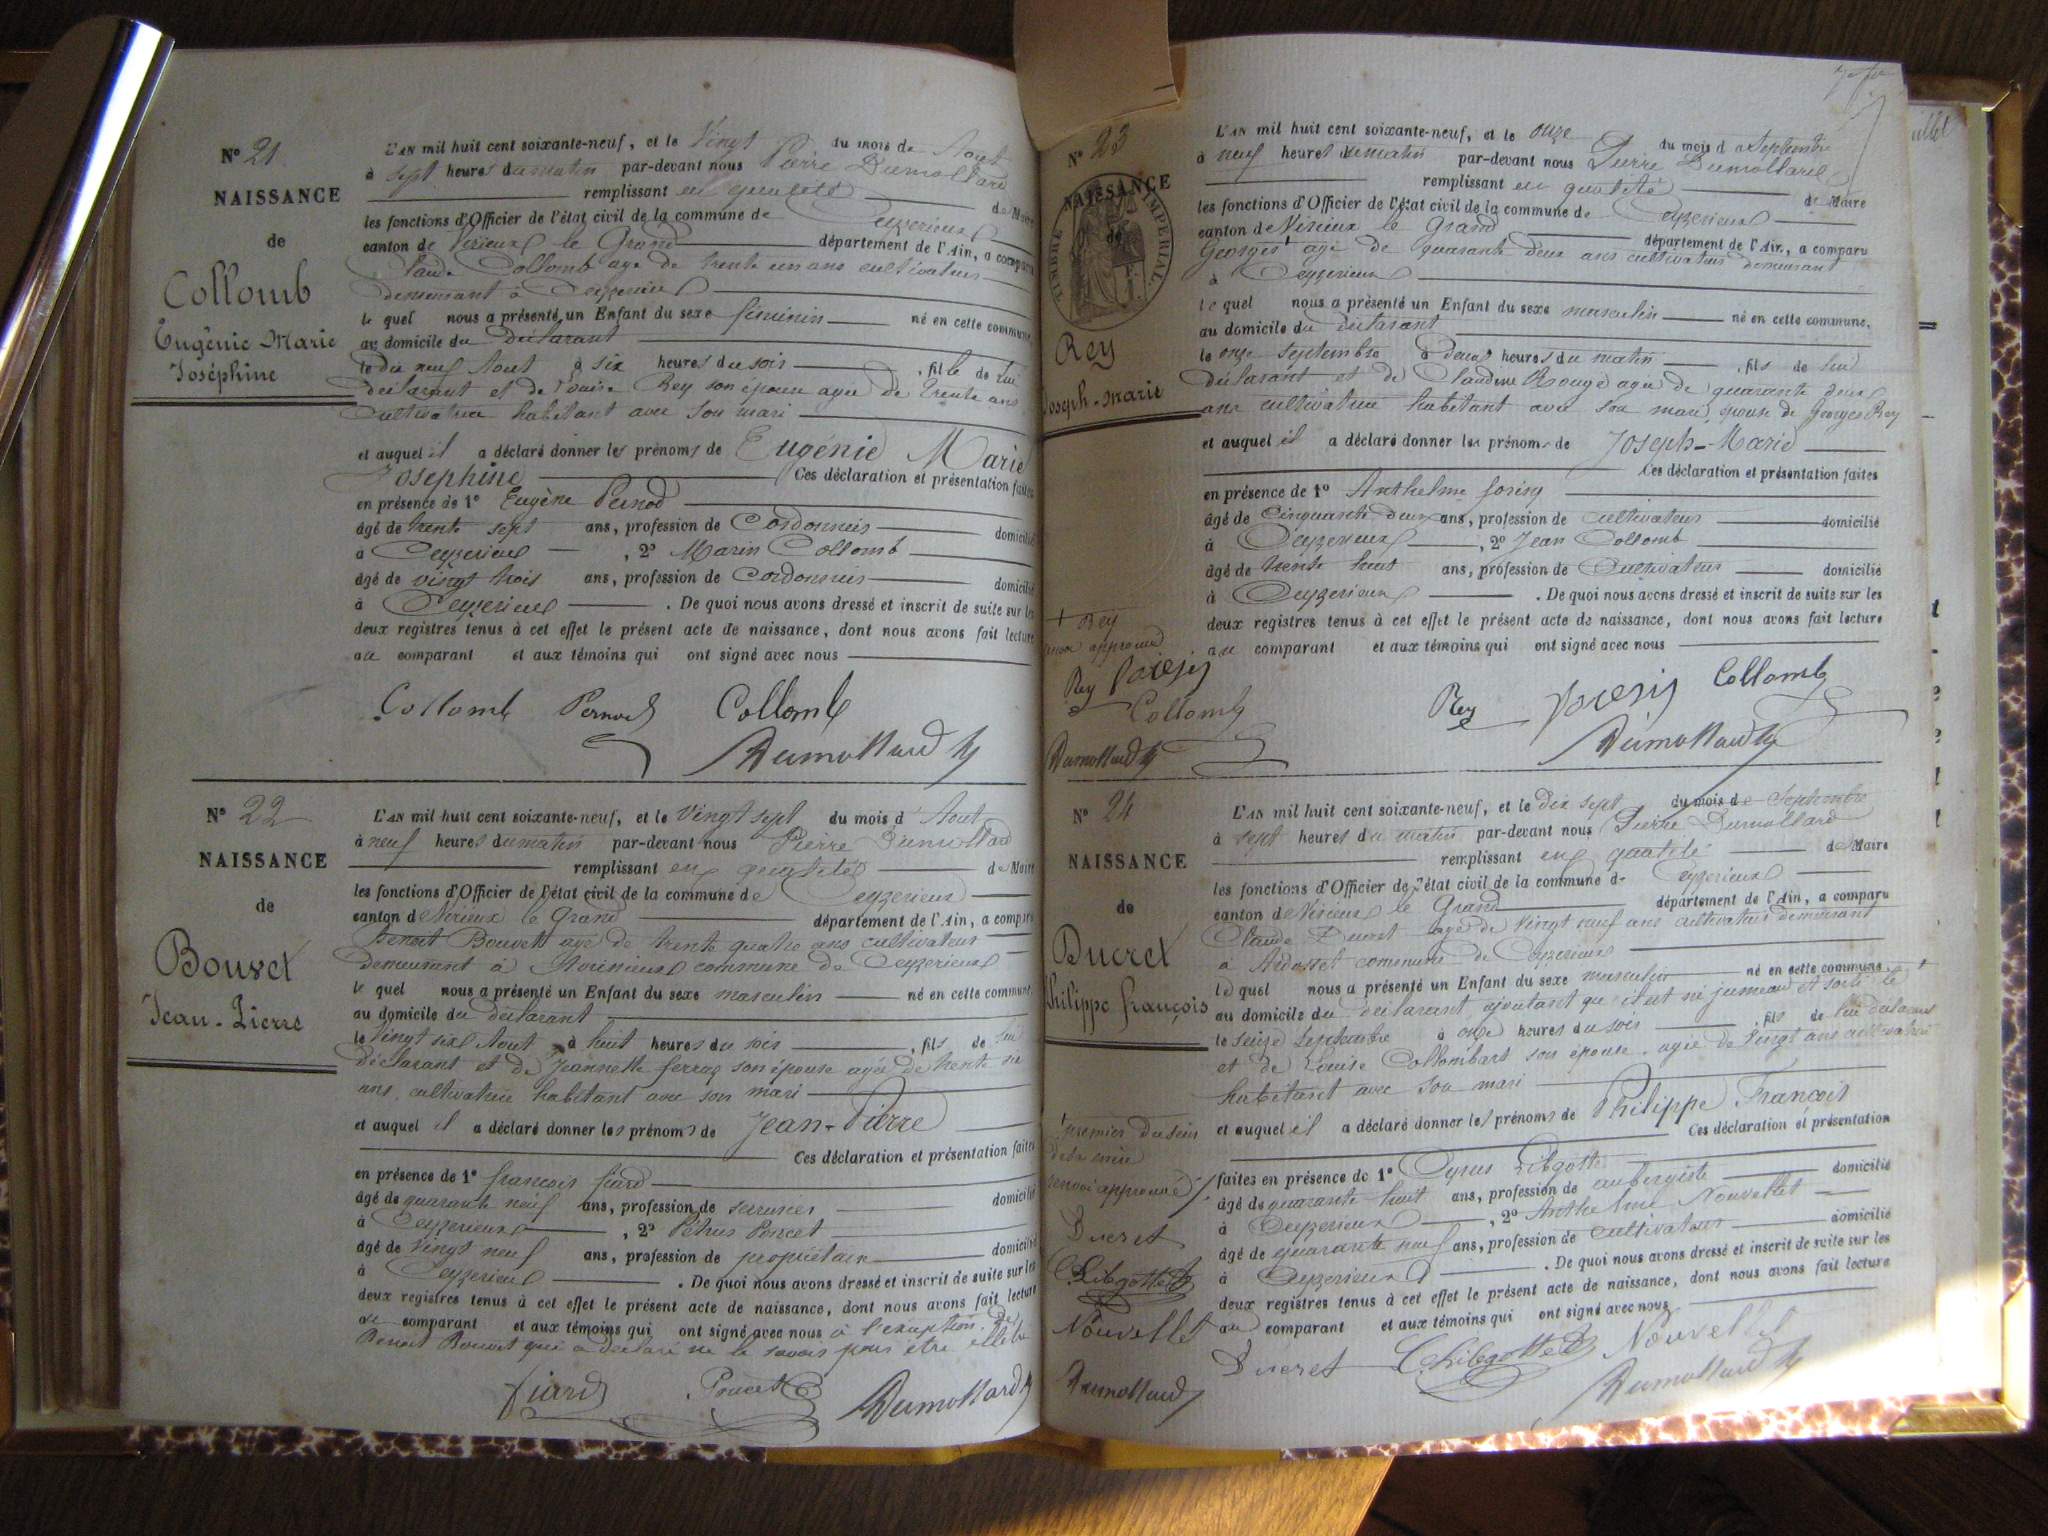 Nº 21
NAISSANCE
de
Collomb
Eugénie Marie
Joséphine
L'AN mil huit cent soixante-neuf, et le Vingt du mois de Aout
à sept heures du matin par-devant nous Pierre Dumollard
remplissant en qualité de Maire
les fonctions d'Officier de l'état civil de la commune de Ceyzerieux
canton de Virieux le Grand département de l'Ain, a comparu
Claude Collomb age de trente un ans cultivateur
demeurant à Ceyzerieux
le quel nous a présenté un Enfant du sexe féminin né en cette commune,
au domicile du déclarant
le dix neuf Aout à six heures du soir , fille de lui
déclarant et de Rey son épouse agée de trente ans
cultivatrice habitant avec son mari
et auquel il a déclaré donner les prénoms de Eugénie Marie
Josephine Ces déclaration et présentation faites
en présence de 1º Eugène Pernod
âgé de trente sept ans, profession de Cordonnier domicilié
à Ceyzerieux , 2º Marin Collomb
âgé de vingt trois ans, profession de Cordonnier domicilié
à Ceyzerieux . De quoi nous avons dressé et inscrit de suite sur les
deux registres tenus à cet effet le présent acte de naissance, dont nous avons fait lecture
au comparant et aux témoins qui ont signé avec nous
Collomb Pernod Collomb
Dumollard
Nº 22
NAISSANCE
de
Bouvet
Jean-Pierre
L'AN mil huit cent soixante-neuf, et le Vingt sept du mois d'Aout
à neuf heures du matin par-devant nous Pierre Dumollard
remplissant en qualité de Maire
les fonctions d'Officier de l'état civil de la commune de Ceyzerieux
canton de Virieux le Grand département de l'Ain, a comparu
Benoit Bouvet agé de trente quatre ans cultivateur
demeurant à commune de Ceyzerieux
le quel nous a présenté un Enfant du sexe masculin né en cette commune.
au domicile du déclarant
le Vingt six Aout à huit heures du soir , fils de lui
déclarant et de Jeannette ferraz son épouse agée de trente
ans, cultivatrice habitant avec son mari
et auquel il a déclaré donner les prénoms de Jean-Pierre
Ces déclaration et présentation faites
en présence de 1º françois fiard
âgé de quarante neuf ans, profession de serrurier domicilié
à Ceyzerieux , 2º Pétrus Poncet
âgé de Vingt neuf ans, profession de propriétaire domicilié
à Ceyzerieux . De quoi nous avons dressé et inscrit de suite sur les
deux registres tenus à cet effet le présent acte de naissance, dont nous avons fait lecture
au comparant et aux témoins qui ont signé avec nous à l'exception de
Benoit Bouvet qui a déclaré ne le savoir pour être illétré
fiard Poncet Dumollard
Nº 23
NAISSANCE
de
TIMBRE IMPERIAL
Rey
Joseph-Marie
L'AN mil huit cent soixante-neuf, et le onze du mois de Septembre
à neuf heures du matin par-devant nous Pierre Dumollard
remplissant en qualité de Maire
les fonctions d'Officier de l'état civil de la commune de Ceyzerieux
canton de Virieux le Grand département de l'Ain, a comparu
Georges + agé de quarante deux ans cultivateur demeurant
à Ceyzerieux
le quel nous a présenté un Enfant du sexe masculin né en cette commune,
au domicile du déclarant
le onze septembre à deux heures du matin , fils de lui
déclarant et de Claudine Rougé agée de quarante deux
ans cultivatrice habitant avec son mari, épouse de Georges Rey
et auquel il a déclaré donner les prénoms de Joseph-Marie
Ces déclaration et présentation faites
en présence de 1º Anthelme
âgé de Cinquante deux ans, profession de cultivateur domicilié
à Ceyzerieux , 2º Jean Collomb
âgé de trente huit ans, profession de Cultivateur domicilié
à Ceyzerieux . De quoi nous avons dressé et inscrit de suite sur les
deux registres tenus à cet effet le présent acte de naissance, dont nous avons fait lecture
au comparant et aux témoins qui ont signé avec nous
+ Rey
renvoi approuvé
Rey
Collomb
Dumollard
Rey Collomb
Dumollard
Nº 24
NAISSANCE
de
Ducret
Philippe françois
L'AN mil huit cent soixante-neuf, et le dix sept du mois de Septembre
à sept heures du matin par-devant nous Pierre Dumollard
remplissant en qualité de Maire
les fonctions d'Officier de l'état civil de la commune de Ceyzerieux
canton de Virieux le Grand département de l'Ain, a comparu
Claude Ducret agé de vingt neuf ans cultivateur demeurant
à Ardosset commune de Ceyzerieux
le quel nous a présenté un Enfant du sexe masculin né en cette commune.
au domicile du déclarant, ajoutant qu'il est né jumeau et sorti le +
le seize Septembre à onze heures du soir , fils de lui déclarant
et de Louise Collombart son épouse agée de vingt ans cultivatrice
habitant avec son mari
et auquel il a déclaré donner les prénoms de Philippe François
Ces déclaration et présentation
faites en présence de 1º Cyrus Libgotte domicilié
âgé de quarante huit ans, profession de aubergiste
à Ceyzerieux , 2º Anthelme Nouvellet
âgé de quarante neuf ans, profession de cultivateur domicilié
à Ceyzerieux . De quoi nous avons dressé et inscrit de suite sur les
deux registres tenus à cet effet le présent acte de naissance, dont nous avons fait lecture
au comparant et aux témoins qui ont signé avec nous
+ premier du sein
de sa mère
renvoi approuvé
Ducret
C. Libgotte
Nouvellet
Dumollard
Ducret C. Libgotte Nouvellet
Dumollard